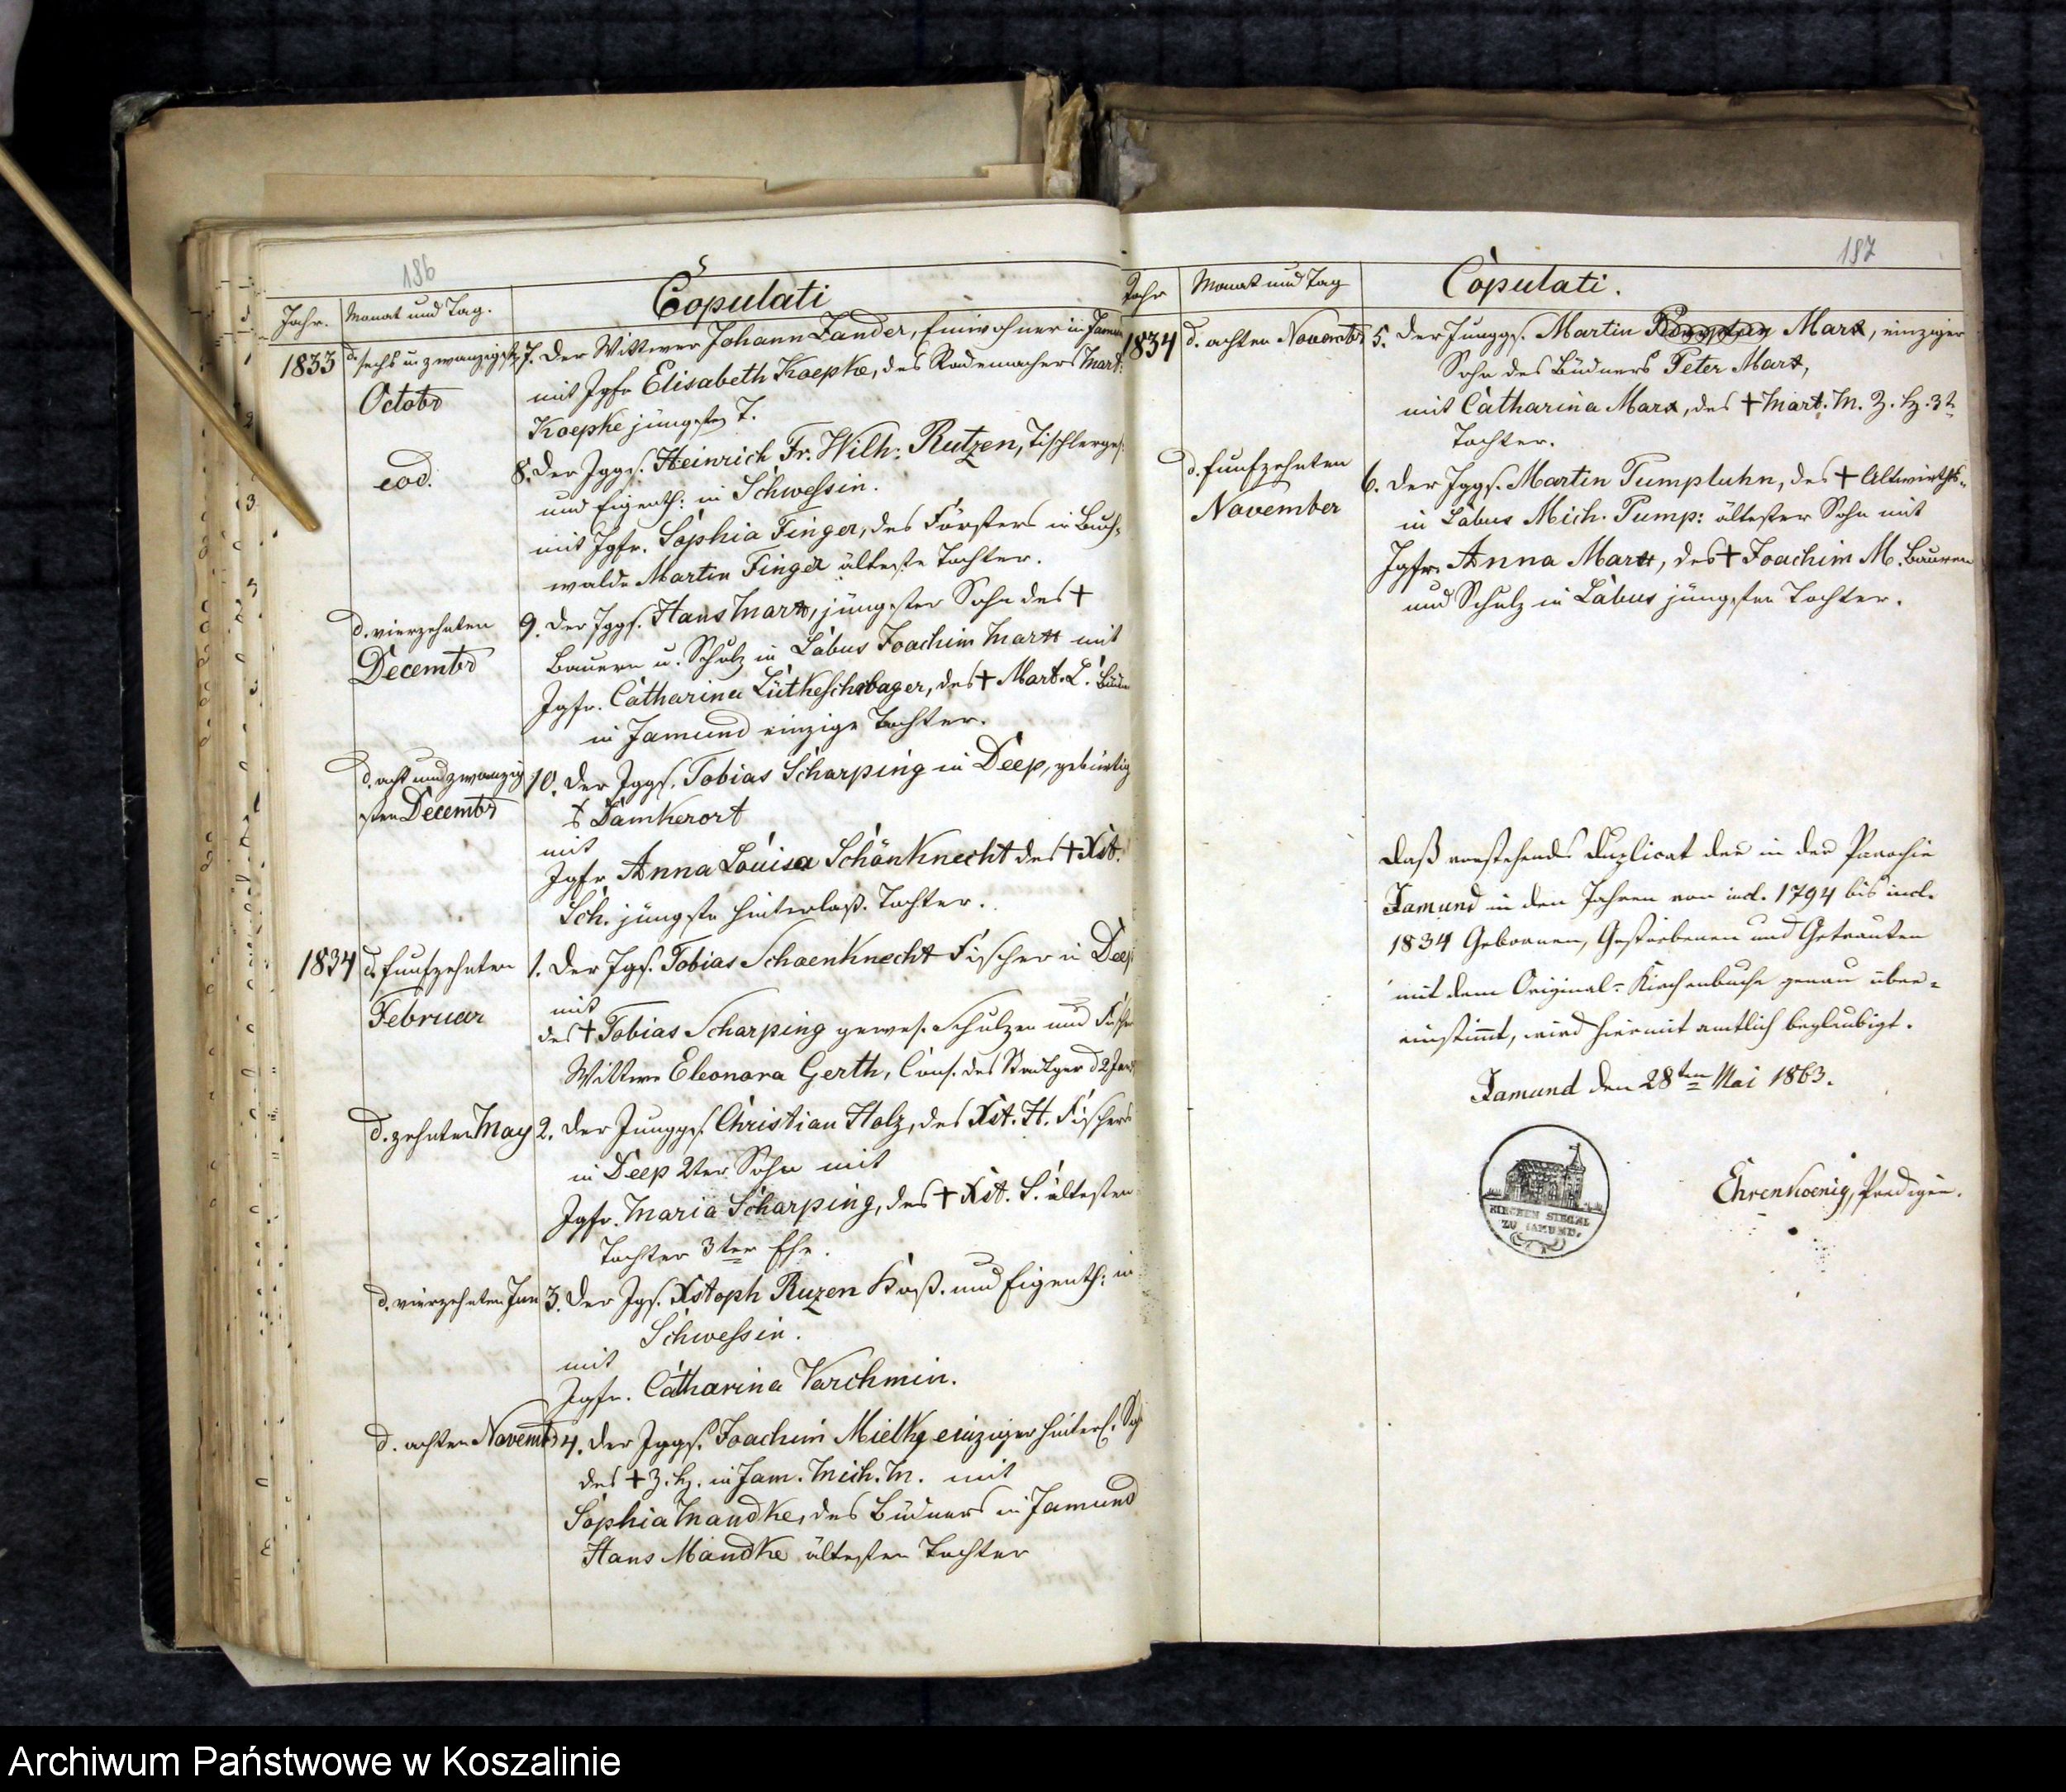 186
Copulati
Jahr. Monat und Tag.
1833 d. sechs u. zwanzigst. 7. Der Wittwer Johann Zander, Einwohner in Jamu
Octobr mit Jgfr Elisabeth Koepke, des Rademachers Mart:
Koepke jüngsten T.
eod. 8. Der Jgges. Heinrich Fr. Wilh: Rutzen, Tischlerges.
und Eigenth: in Schwessin.
mit Jgfr. Sophia Finger, des Försters in Buch-
walde Martin Finger älteste Tochter.
d. vierzehnten 9. Der Jggs. Hans Martt, jüngster Sohn des †
Decembr Bauern u. Schulz in Labus Joachim Martt mit
Jgfr. Catharina Lütkeschwager, des † Mart. L. Büdn
in Jamund einzige Tochter.
d. acht und zwanzig 10. Der Jggs. Tobias Scharping in Deep, gebürtig
sten Decembr Damkerort
mit
Jgfr Anna Louisa Schönknecht des † Xst.
Sch. jüngste hinterlaß. Tochter.
1834 d. funfzehnten 1. Der Jgs. Tobias Schoenknecht Fischer in Deep
Februar mit
des † Tobias Scharping gewes. Schulzen und Fischer
Wittwe Eleonora Gerth, Cons. des Stadtger d 2 Jan
d. zehnten May 2. Der Junggs. Christian Holz, des Xst. H. Fischers
in Deep 2ter Sohn mit
Jgfr. Maria Scharping, des † Xst. S. ältesten
Tochter 3ter Ehe.
d. vierzehnten Jun 3. Der Jgs. Xstoph Ruzen Koß. und Eigenth: in
Schwessin.
mit
Jgfr. Catharina Varchmin.
d. achten Novemb 4. Der Jggs. Joachim Mielke einziger hinterl. Soh
des † Z. H. in Jam. Mich. M. mit
Sophia Mandke, des Büdners in Jamund
Hans Mandke ältesten Tochter
187
Jahr Monat und Tag Copulati.
1834 d. achten Novembr 5. Der Junggs. Martin Marx, einziger
Sohn des Büdners Peter Marx,
mit Catharina Marx, des † Mart. M. Z. H. 3t
Tochter.
d. funfzehnten 6. Der Jggs. Martin Pumpluhn, des † Altwirths
November in Labus Mich. Pump: ältester Sohn mit
Jgfr. Anna Martt, des † Joachim M. Bauren
und Schulz in Labus jüngsten Tochter.
Daß vorstehendes Duplicat der in der Parochie
Jamund in den Jahren von incl. 1794 bis incl.
1834 Gebornen, Gestorbenen und Getrauten
mit dem Original-Kirchenbuche genau über-
einstimmt, wird hiermit amtlich beglaubigt.
Jamund den 28ten Mai 1863.
KIRCHEN SIEGEL
ZU JAMUND.
Ehrenkoenig, Prediger.
Archiwum Państwowe w Koszalinie